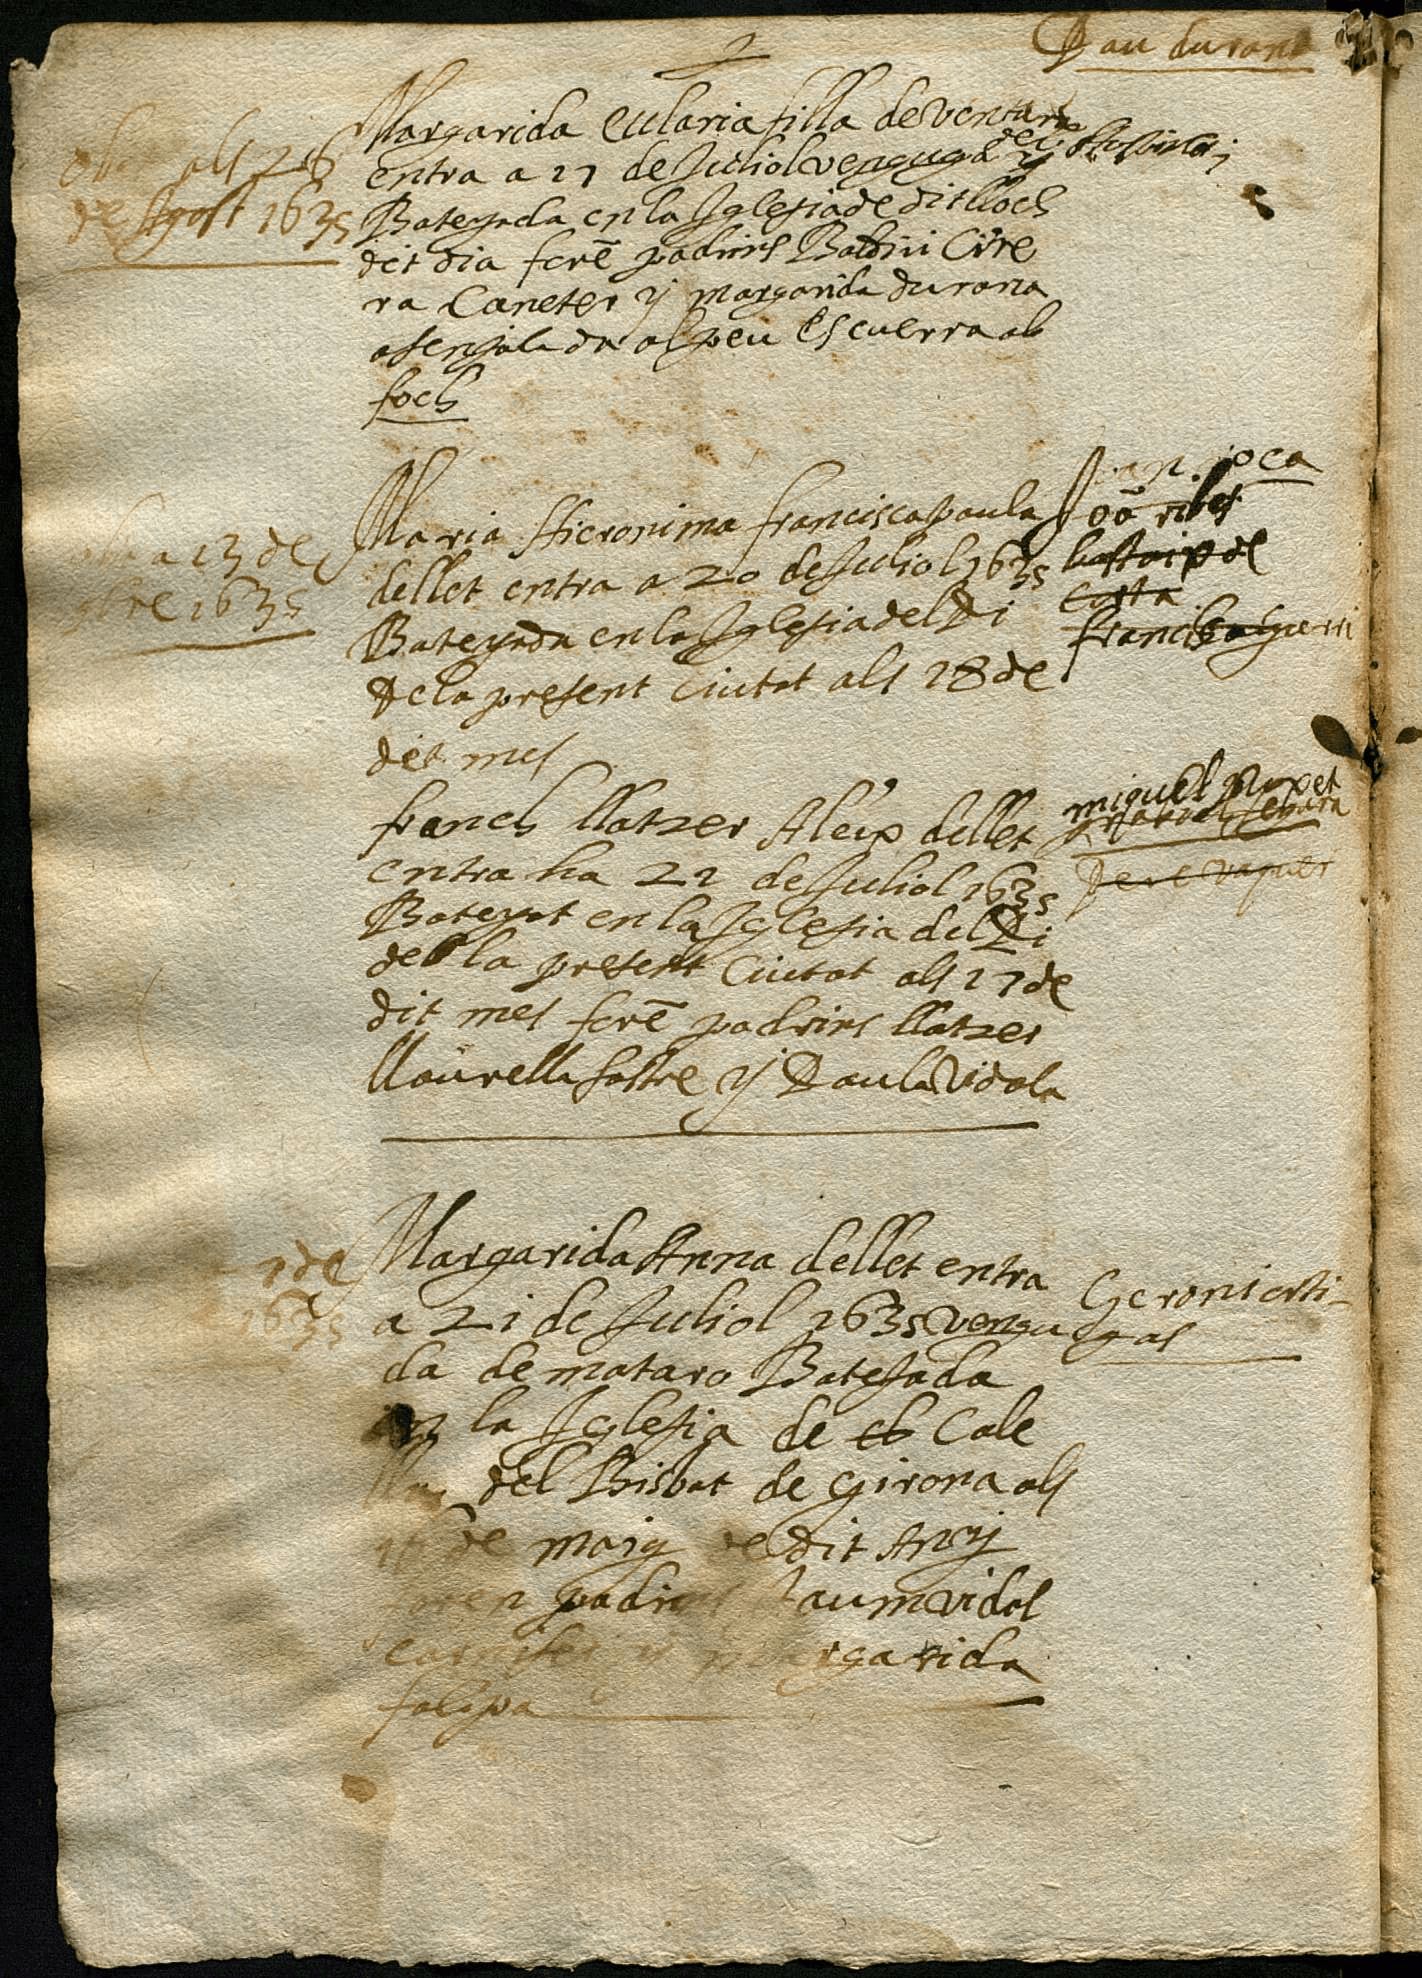 Pau durana
als 26
de Agost 1635
Margarida Eularia filla de ventura
entra a 17 de Juliol venguda de
Bateyada en la Iglesia de dit lloch
dit dia forẽ padrins Baldiri Cire
ra Caneter y Margarida durana
asenyalada al peu Escuerra ab
foch
a 13 de
bre 1635
Maria Hieronima francisca paula
dellet entra a 20 de Juliol 1635
Bateyada en la Iglesia del Pi
De la present Ciutat als 18 de
dit mes
roca
Joã ribes
costa
franch llatzer Aleix dellet
entra ha 21 de Juliol 1635
Bateyat en la Iglesia del Pi
de la present Ciutat als 17 de
dit mes forẽ padrins llatzer
llaurella sastre y Paula Vidala
miquel
Pere vaquer
de
1635
Margarida Anna dellet entra
a 21 de Juliol 1635 vengu
da de mataro Batejada
en la Iglesia de Cale
lla del Bisbat de Girona als
de maig de dit Any
foren padrins Jaum vidal
y Margarida
falipa
Geroni arti-
gas